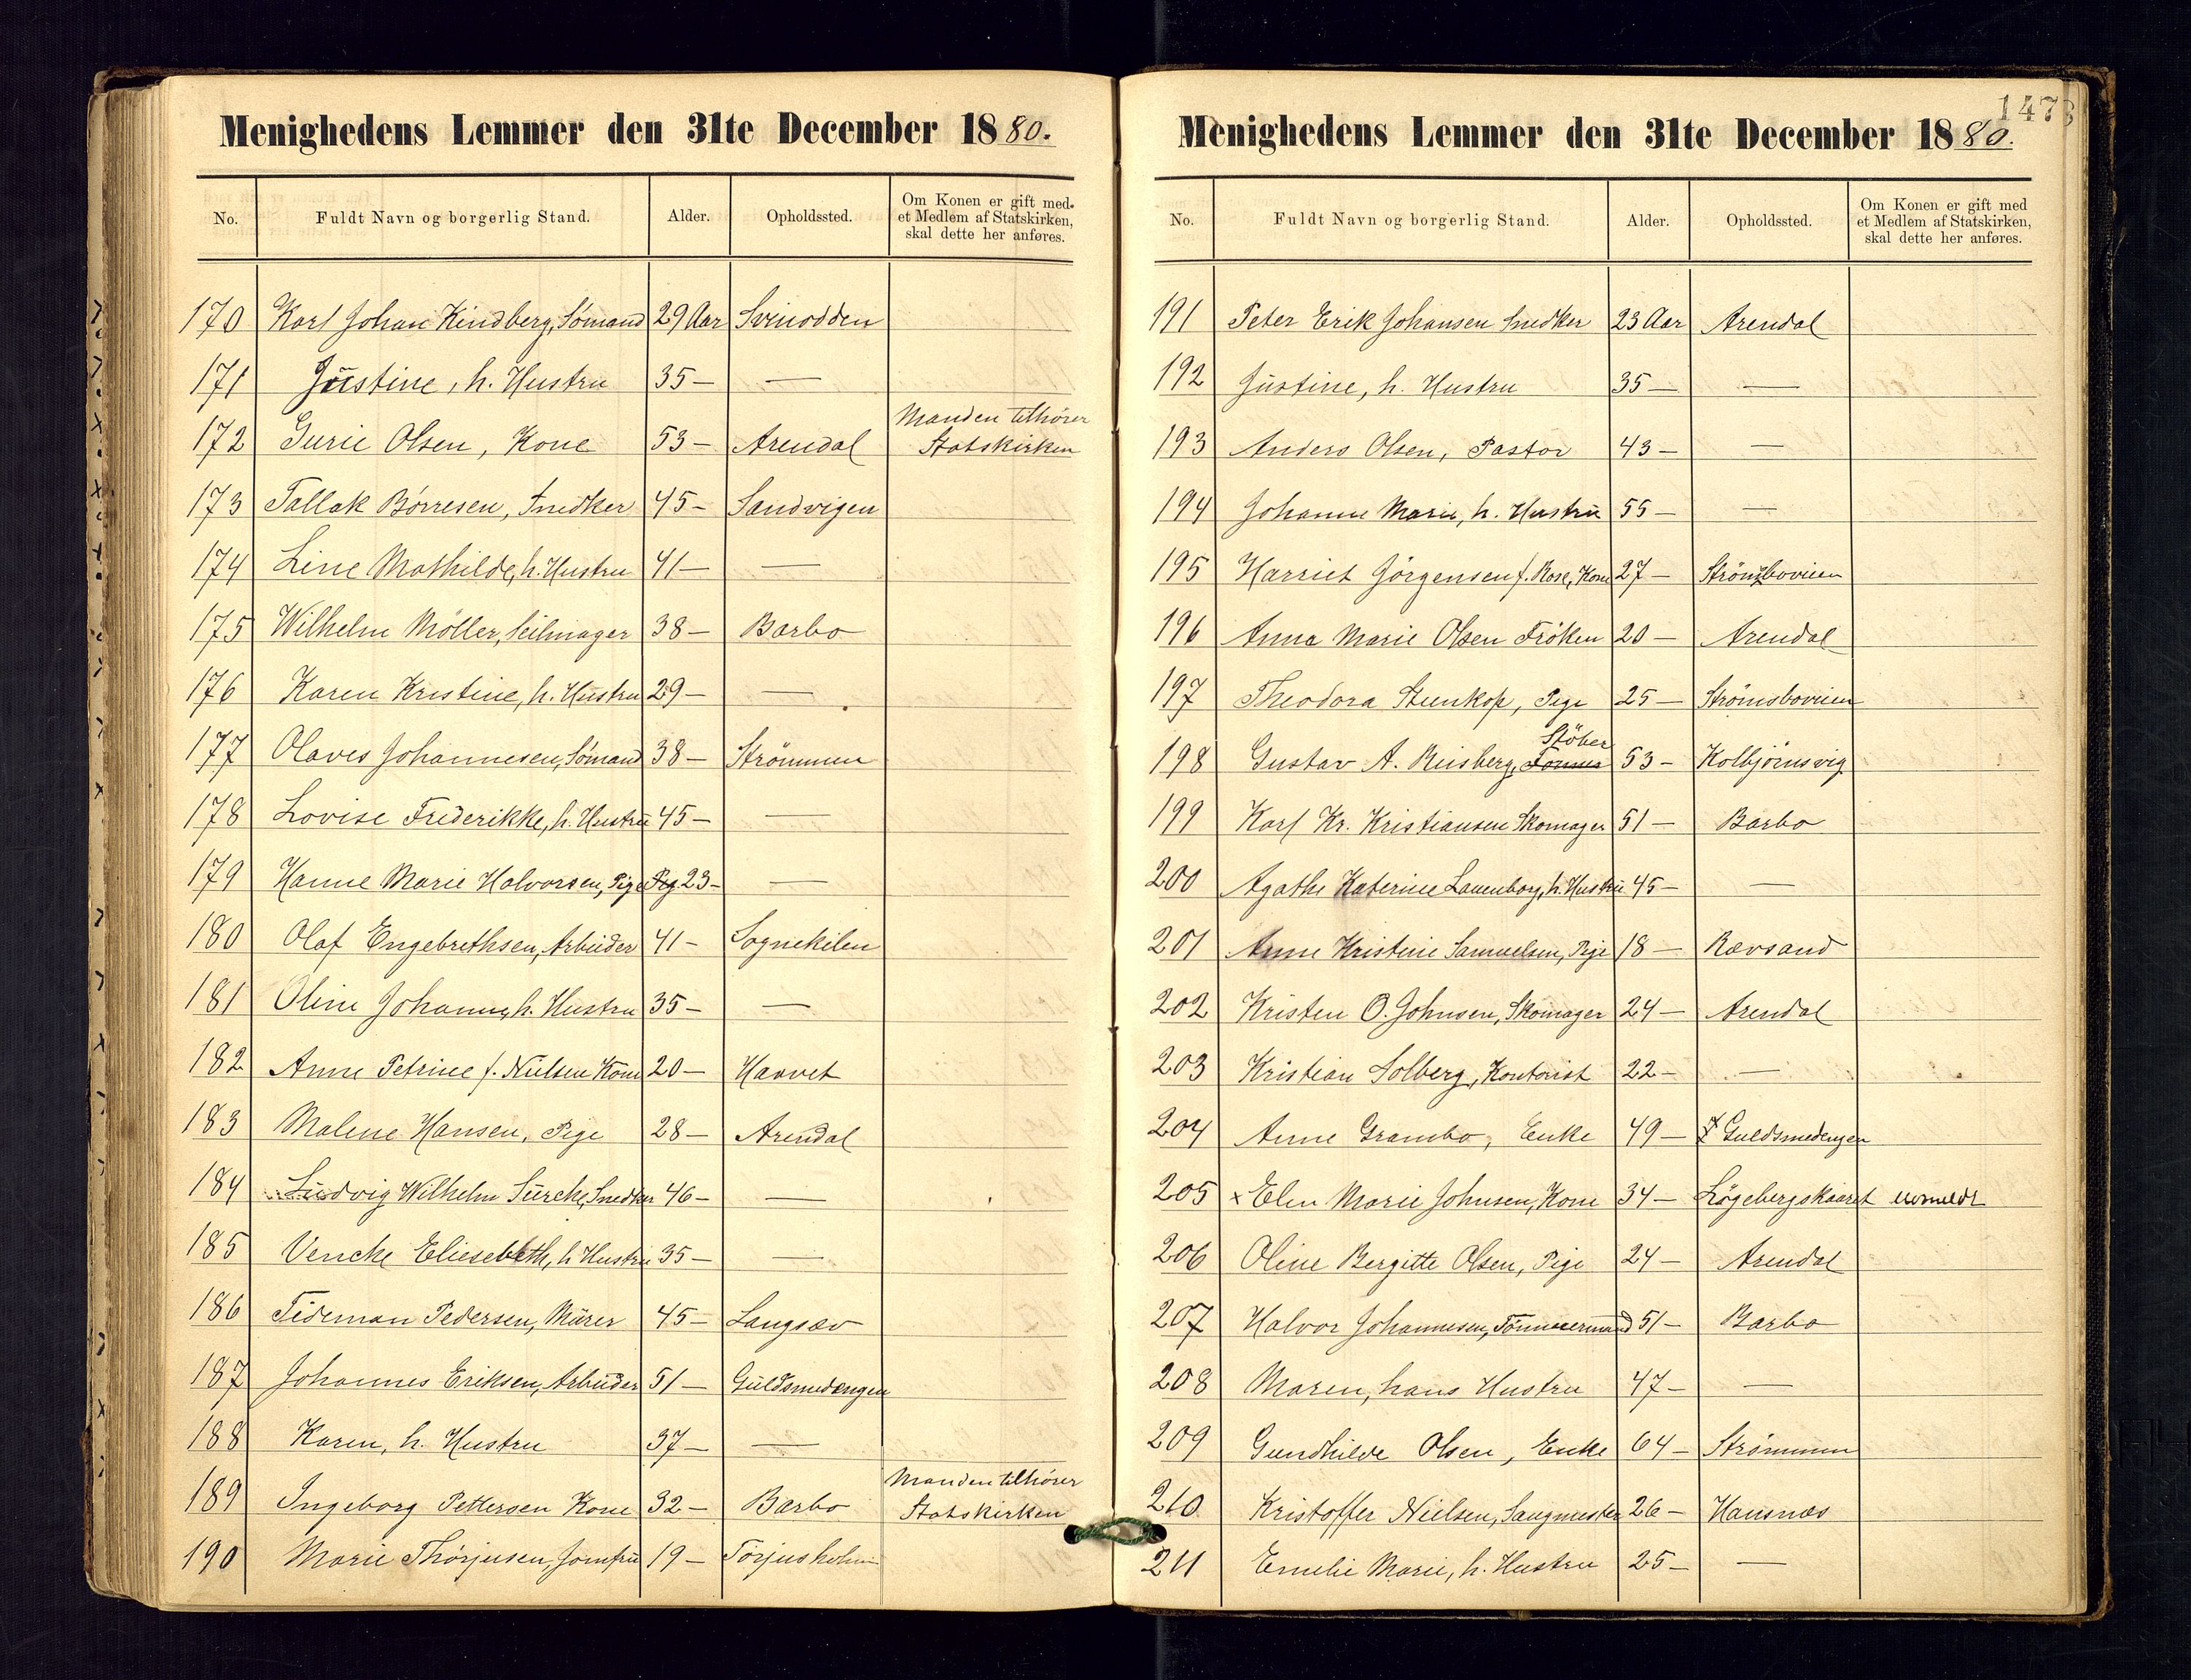 Menighedens Lemmer den 31te December 1880.
No. Fuldt Navn og borgerlig Stand. Alder. Opholdssted. Om Konen er gift med et Medlem af Statskirken, skal dette her anføres.
170 Karl Johan Kindberg, Sömand 29 Aar Svinodden
171 Justine, h. Hustru 35 — —
172 Gurie Olsen, Kone 53 — Arendal Manden tilhörer Statskirken
173 Tallak Börresen, Snedker 45 — Sandvigen
174 Line Mathilde, h. Hustru 41 — —
175 Wilhelm Möller, Seilmager 38 — Barbo
176 Karen Kristine, h. Hustru 29 — —
177 Olaves Johannesen, Sömand 38 — Strömmen
178 Lovise Frederikke, h. Hustru 45 — —
179 Hanne Marie Halvorsen, Pige Pig 23 — —
180 Olaf Engebrethsen, Arbeider 41 — Sognekilen
181 Oline Johanne, h. Hustru 35 — —
182 Anne Petrine f. Nielsen Kone 20 — Harvet
183 Malene Hansen, Pige 28 — Arendal
184 Ludvig Wilhelm Sürche, Snedker 46 — —
185 Vencke Eliesebeth, h. Hustru 35 — —
186 Tideman Pedersen, Mürer 45 — Langsæv
187 Johannes Eriksen, Arbeider 51 — Guldsmedengen
188 Karen, h. Hustru 37 — —
189 Ingeborg Pettersen Kone 32 — Barbo Manden tilhörer Statskirken
190 Marie Thörjusen, Jomfru 19 — Torjusholm
1473
Menighedens Lemmer den 31te December 1880.
No. Fuldt Navn og borgerlig Stand. Alder. Opholdssted. Om Konen er gift med et Medlem af Statskirken, skal dette her anføres.
191 Peter Erik Johansen Snedker 23 Aar Arendal
192 Justine, h. Hustru 35 — —
193 Anders Olsen, Pastor 43 — —
194 Johanne Marie, h. Hustru 55 — —
195 Harriet Jörgensen f. Rose, Kone 27 — Strömsboveien
196 Anna Marie Olsen Fröken 20 — Arendal
197 Theodora Steenkop, Pige 25 — Strömsboveien
198 Gustav A. Riisberg, Stöber 53 — Kolbjörnsvig
199 Karl Kr. Kristiansen Skomager 51 — Barbo
200 Agathe Katerine Lauenborg, h. Hustru 45 — —
201 Anne Kristine Samuelsen, Pige 18 — Rævsand
202 Kristen O. Johnsen, Skomager 24 — Arendal
203 Kristian Solberg, Kontorist 22 — —
204 Anne Grambo, Enke 49 — Guldsmedengen
205 x Elen Marie Johnsen, Kone 34 — Lögebergskaaret
206 Oline Bergitte Olsen, Pige 24 — Arendal
207 Halvor Johannesen, Tömmermand 51 — Barbo
208 Maren, hans Hustru 47 — —
209 Gundhilde Olsen, Enke 64 — Strömmen
210 Kristoffer Nielsen, Saugmester 26 — Hansnæs
211 Emelie Marie, h. Hustru 25 — —